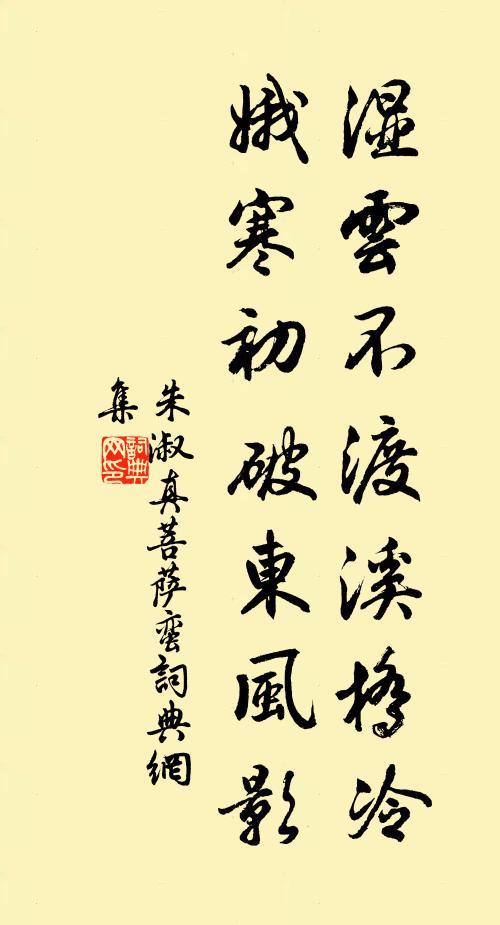 濕雲不渡溪橋冷
娥寒初破東風影
朱淑真菩薩蠻詞典網
集
詞典
网印